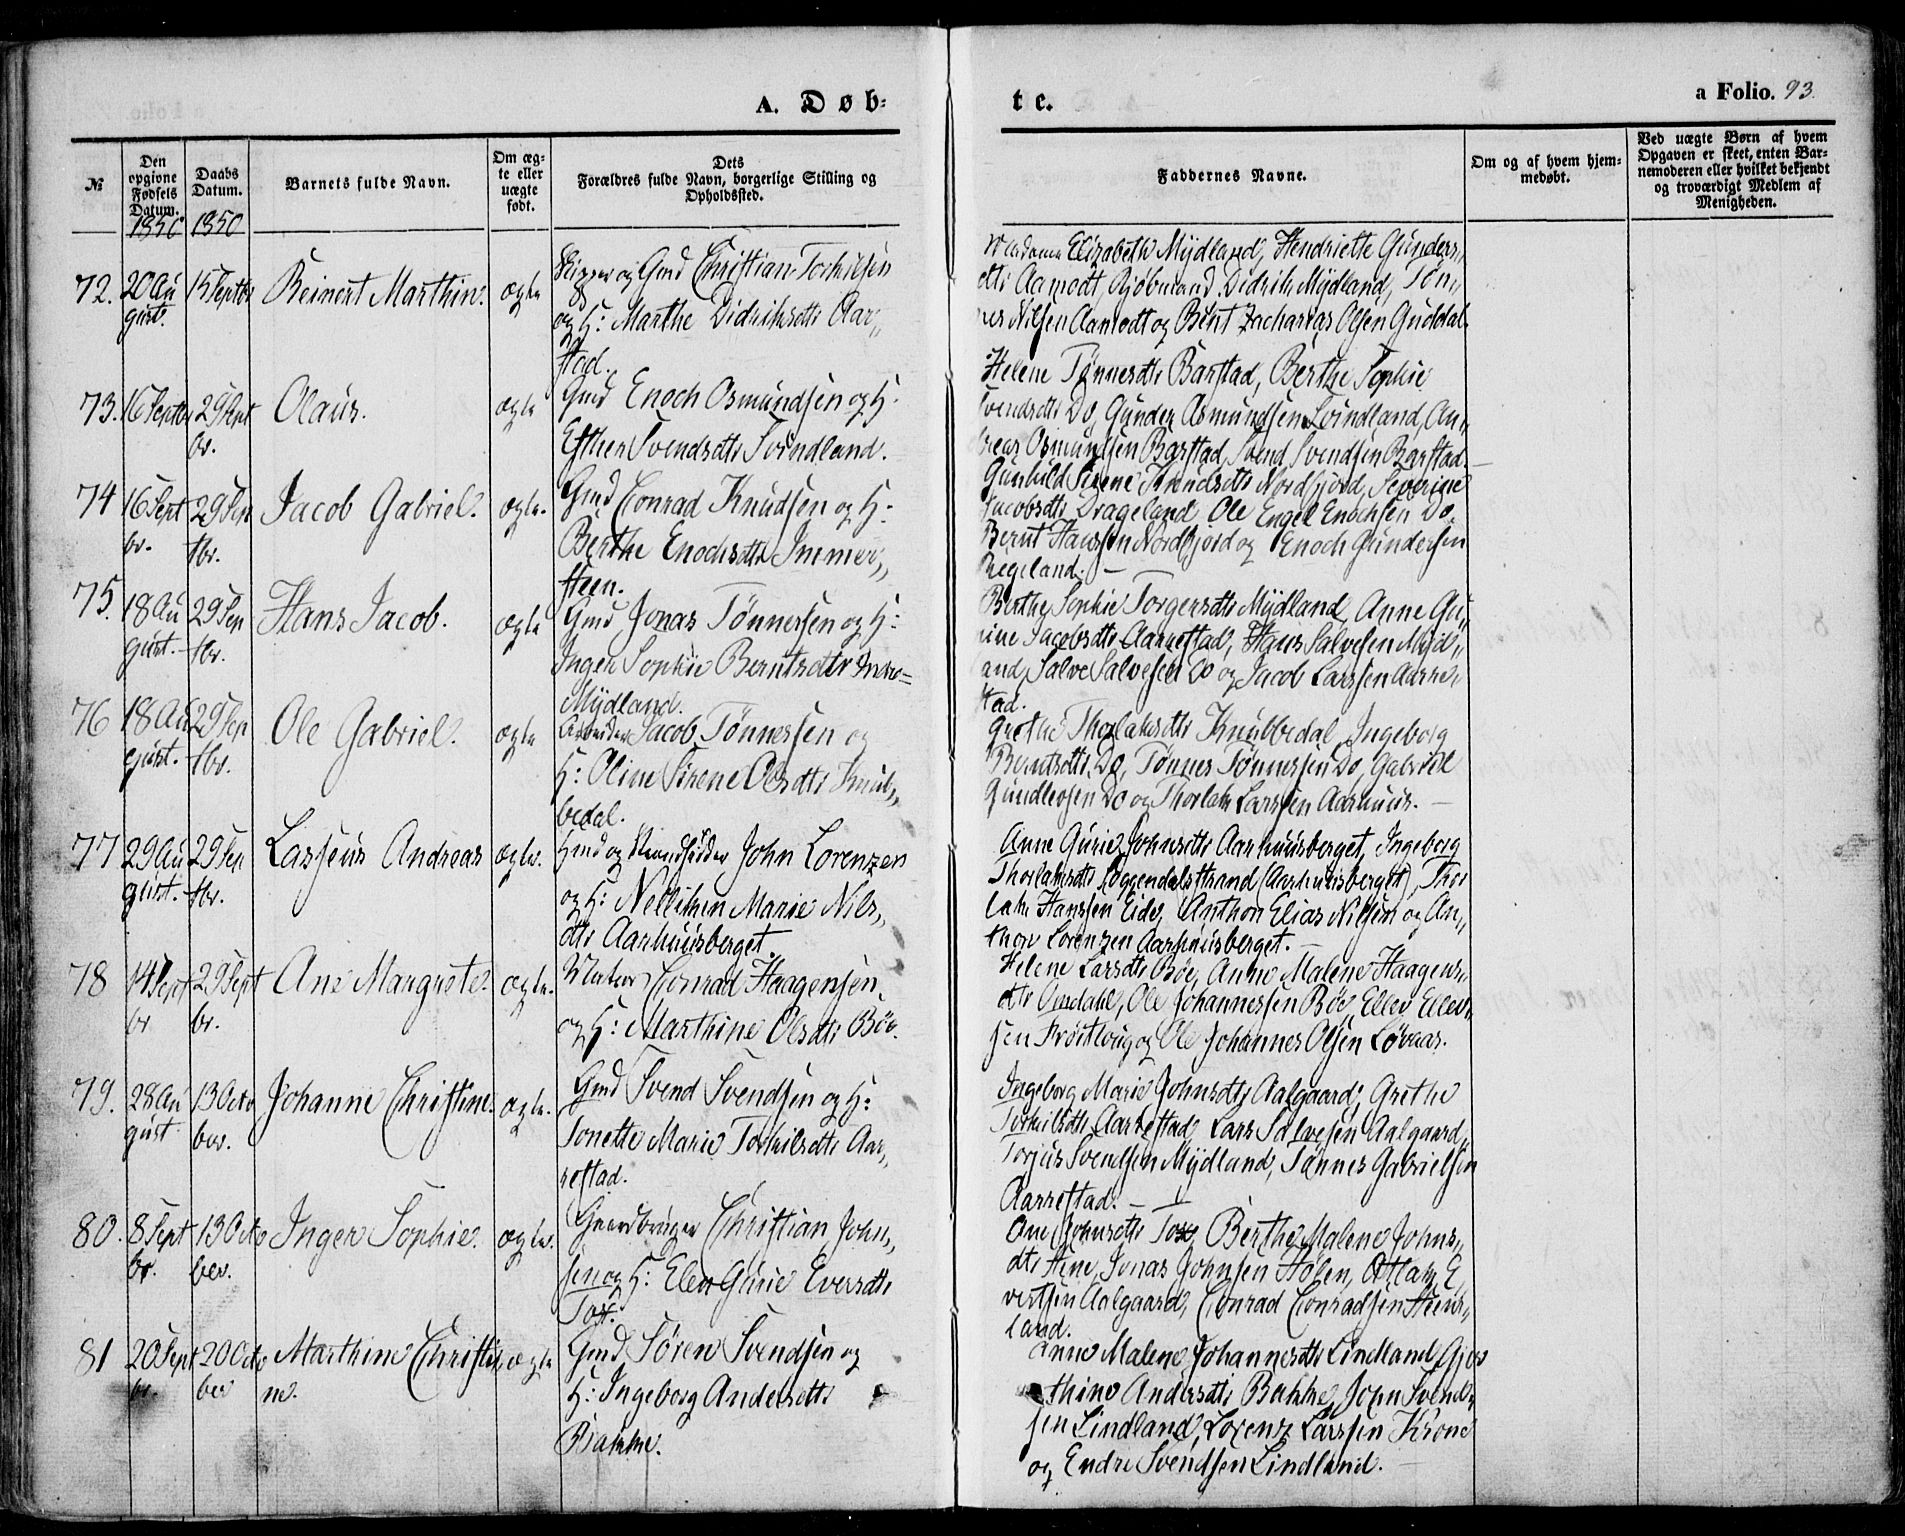 A. Døb-
te.
a Folio. 93.
№
Den opgivne Fødsels Datum.
Daabs Datum.
Barnets fulde Navn.
Om ægte eller uægte født.
Dets
Forældres fulde Navn, borgerlige Stilling og
Opholdssted.
Faddernes Navne.
Om og af hvem hjem-
medøbt.
Ved uægte Børn af hvem
Opgaven er skeet, enten Bar-
nemoderen eller hvilket bekjendt
og troværdigt Medlem af
Menigheden.
1850 1850
72. 20 Au gust. 15 Septbr Reinert Marthin. ægte
Skipper og Gmd Christian Torkilsen
og H: Marthe Didriksdtr Aar„
stad.
Madame Elizabeth Mydland, Hendriette Gunders„
dtr Aamodt, Kjøbmand Didrik Mydland, Tøn„
nes Nilsen Aamodt og Bent Zacharias Olsen Guddal.
73. 16 Septbr 29 Sept br. Olaus. ægte
Gmd Enoch Osmundsen og H.
Esther Svendsdtr Svindland.
Helene Tønnesdtr Barstad, Berthe Sophie
Svendsdtr Do, Gunder Asmundsen Svindland, An„
dreas Osmundsen Barstad, Svend Svendsen Barstad.
74 16 Sept br. 29 Sep tbr. Jacob Gabriel. ægte.
Gmd Conrad Knudsen og H:
Berthe Enochsdtr Immer„
steen.
Gunhild Sirene Knudsdtr Nordfjord, Severine
Jacobsdtr Drageland, Ole Engel Enochsen Do.
Bernt Hanssen Nordfjord og Enoch Gundersen
Regeland. –
75. 18 Au gust. 29 Sep tbr. Hans Jacob. ægte
Gmd Jonas Tønnessen og H:
Inger Sophie Berntsdtr Indre-
Mydland.
Berthe Sophie Torgersdtr Mydland, Anne Gu„
rine Jacobsdtr Aarrestad, Hans Salvesen Myd„
land, Salve Salvesen Do og Jacob Larssen Aarre„
stad.
76 18 Au gust. 29 Sep tbr. Ole Gabriel. ægte
Arbeider Jacob Tønnessen og
H: Oline Sirene Olsdtr Knub„
bedal.
Grethe Thorlaksdtr Knubbedal, Ingeborg
Berntsdtr Do, Tønnes Tønnessen Do, Gabriel
Gundlevsen Do og Thorlak Larssen Aarhuus. –
77 29 Au gust. 29 Sep tbr. Lasseus Andreas ægte.
Hmd og Strandsidder John Lorenzen
og H: Nelliken Marie Nils„
dtr Aarhuusberget.
Anne Gurie Johnsdtr Aarhuusberget, Ingeborg
Thorlaksdtr Soggendalsstrand (Aarhuusberget), Thor
lak Hanssen Eide, Anthon Elias Nilssen og An„
thon Lorenzen Aarhuusberget. –
78 14 Sept br 29 Sept br. Ane Margrete. ægte.
Conrad Haagensen
og H: Marthine Olsdtr Bøe.
Helene Larsdtr Bøe, Anne Malene Haagens„
dtr Omdahl, Ole Johannessen Bøe, Ellev Ellev„
sen Frøitlog og Ole Johannes Olsen Løvaas.
79. 28 Au gust 13 Octo ber. Johanne Christine. ægte.
Gmd Svend Svendsen og H:
Tonette Marie Torkilsdtr Aar„
restad.
Ingeborg Marie Johnsdtr Aalgaard, Grethe
Torkilsdtr Aarrestad, Lars Salvesen Aalgaard,
Torjus Svendsen Mydland, Tønnes Gabrielsen
Aarrestad. –
80. 8 Sept br. 13 Octo ber. Inger Sophie. ægte.
Gaardbruger Christian John„
sen og H: Elen Gurie Eversdtr
Tox.
Ane Johnsdtr Tox, Berthe Malene Johns„
dtr Hene, Jonas Johnsen Stølen, Atlak E„
vertsen Aalgaard, Conrad Conradsen Steens„
land.
81 20 Sept br. 20 Octo ber Marthine Christi„ ne. ægte
Gmd Søren Svendsen og
H: Ingeborg Andersdtr
Bakke.
Anne Malene Johannesdtr Lindland, Gjer
thine Andersdtr Bakke, John Svend„
sen Lindland, Lorenz Larssen Krone
og Endre Svendsen Lindland. –